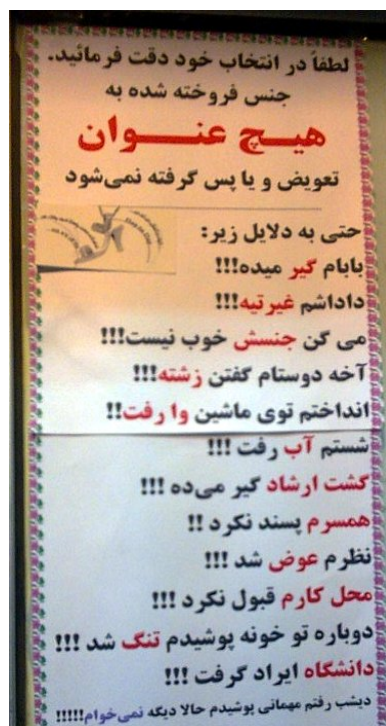 لطفاً در انتخاب خود دقت فرمائید.
جنس فروخته شده به
هیــچ عنـــوان
تعویض و یا پس گرفته نمی‌شود
حتی به دلایل زیر:
بابام گیر میده!!!
داداشم غیرتیه!!!
می گن جنسش خوب نیست!!!
آخه دوستام گفتن زشته!!!
انداختم توی ماشین وا رفت!!
شستم آب رفت !!!
گشت ارشاد گیر می‌ده !!!
همسرم پسند نکرد !!
نظرم عوض شد !!!
محل کارم قبول نکرد !!!
دوباره تو خونه پوشیدم تنگ شد !!!
دانشگاه ایراد گرفت !!!
دیشب رفتم مهمانی پوشیدم حالا دیگه نمی‌خوام!!!!!